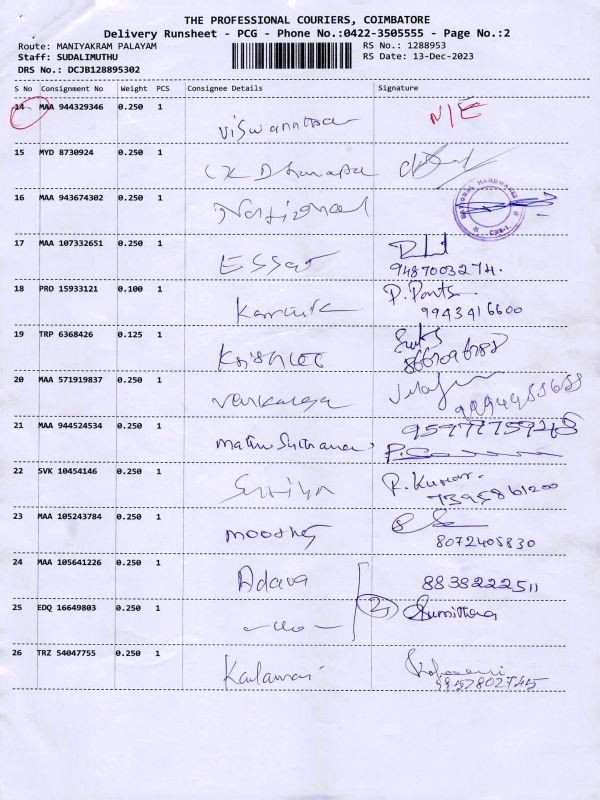 THE PROFESSIONAL COURIERS, COIMBATORE
Delivery Runsheet - PCG - Phone No.:0422-3505555 - Page No.:2
Route: MANIYAKRAM PALAYAM RS No.: 1288953
Staff: SUDALIMUTHU RS Date: 13-Dec-2023
DRS No.: DCJB128895302
S No Consignment No Weight PCS Consignee Details Signature
14 MAA 944329346 0.250 1 N/E
15 MYD 8730924 0.250 1
16 MAA 943674302 0.250 1 National
17 MAA 107332651 0.250 1 Essar
9487003274.
18 PRO 15933121 0.100 1 P. Ponts
9943416600
19 TRP 6368426 0.125 1
20 MAA 571919837 0.250 1
21 MAA 944524534 0.250 1
22 SVK 10454146 0.250 1 Suriya R. Kumar.
7395861200
23 MAA 105243784 0.250 1 Moorthy
8072405830
24 MAA 105641226 0.250 1 Adava 8838222511
25 EDQ 16649803 0.250 1 2 Sumithra
26 TRZ 54047755 0.250 1 Kalawani
9957802745